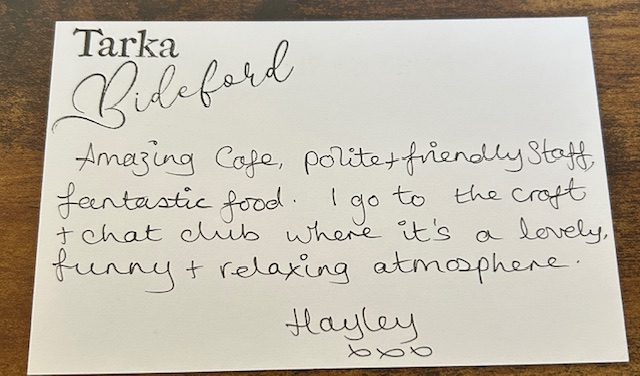 Tarka
Bideford
Amazing Cafe, polite + friendly Staff,
fantastic food. I go to the craft
+ chat club where it's a lovely,
funny + relaxing atmosphere.
Hayley
xxx